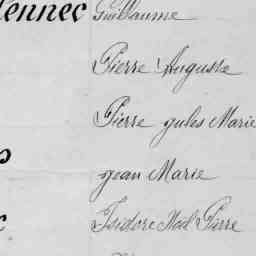 ennec Guillaume
Pierre Auguste
Pierre Jules Marie
Jean Marie
Isidore Noël Pierre